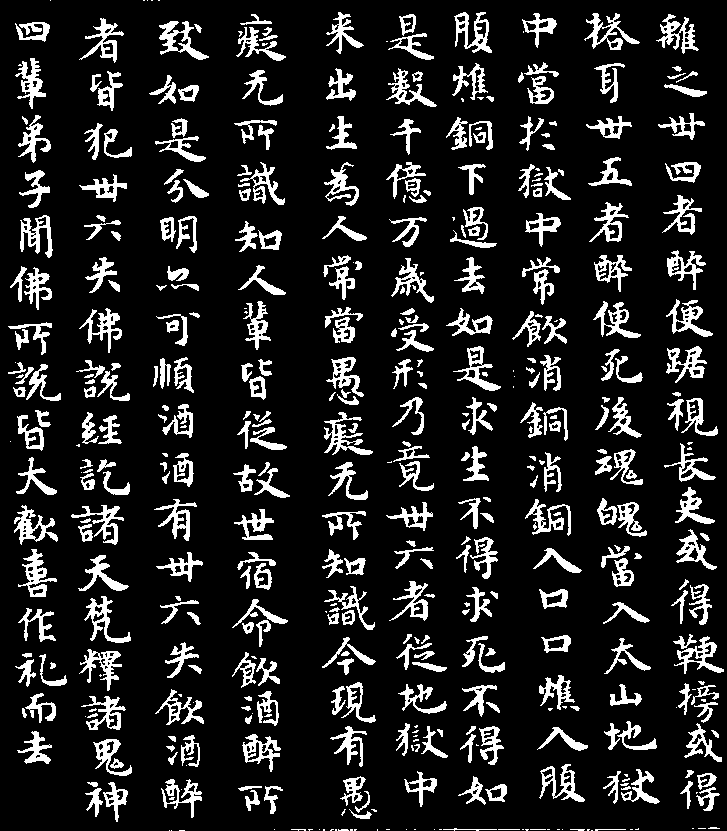 離之丗四者醉便踞視長吏或得鞕搒或得
搭耳丗五者醉便死後魂魄當入太山地獄
中當扵獄中常飲消銅消銅入口口燋入腹
腹燋銅下過去如是求生不得求死不得如
是數千億万歲受形乃竟丗六者從地獄中
来出生為人常當愚癡无所知識今現有愚
癡无所識知人輩皆從故世宿命飲酒醉所
致如是分明亦可慎酒酒有丗六失飲酒醉
者皆犯丗六失佛說經訖諸天梵釋諸鬼神
四輩弟子聞佛所說皆大歡喜作礼而去